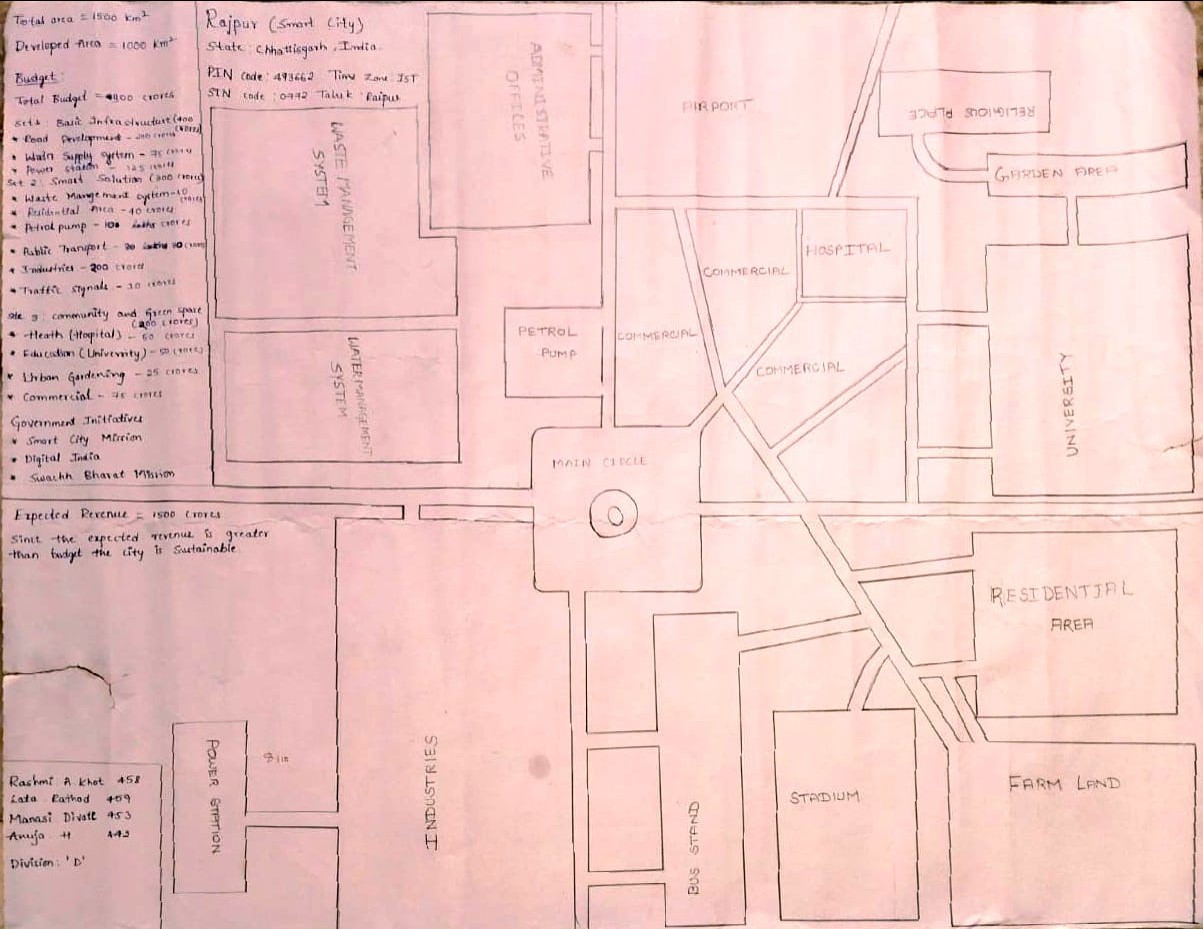 Total area = 1500 Km²
Developed Area = 1000 Km²
Budget:
Total Budget = 800 crores
Set 1: Basic Infrastructure (400 crores)
* Road Development - 200 crores
* Water Supply system - 75 crores
* Power station - 125 crores
Set 2: Smart Solution (200 crores)
* Waste Mangement system - 10 crores
* Residential Area - 40 crores
* Petrol pump - crores
* Public Transport - crores
* Industries - 200 crores
* Traffic signals - 10 crores
3: community and Green space (200 crores)
* Heath (Hospital) - 50 crores
* Education (University) - 50 crores
* Urban Gardening - 25 crores
* Commercial - 75 crores
Government Initiatives
* Smart City Mission
* Digital India
* Swachh Bharat Mission
Expected Revenue = 1500 Crores
Since the expected revenue is greater
than budget the city is Sustainable
Rashmi A Khot 458
Lata Rathod 459
Manasi Divate 453
Anuja H
Division: 'D'
Rajpur (Smart City)
State: Chhattisgarh, India.
PIN code: 493662 Time Zone: IST
STN code: 0772 Taluk: Raipur
WASTE MANAGEMENT
SYSTEM
ADMINISTRATIVE
OFFICES
AIRPORT
RELIGIOUS PLACE
GARDEN AREA
HOSPITAL
COMMERCIAL
COMMERCIAL
COMMERCIAL
PETROL
PUMP
WATER MANAGEMENT
SYSTEM
UNIVERSITY
MAIN CIRCLE
RESIDENTIAL
AREA
POWER STATION
INDUSTRIES
BUS STAND
STADIUM
FARM LAND